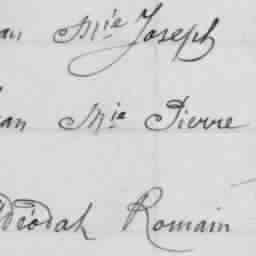 an Mie Joseph
an Mie Pierre
déodah Romain